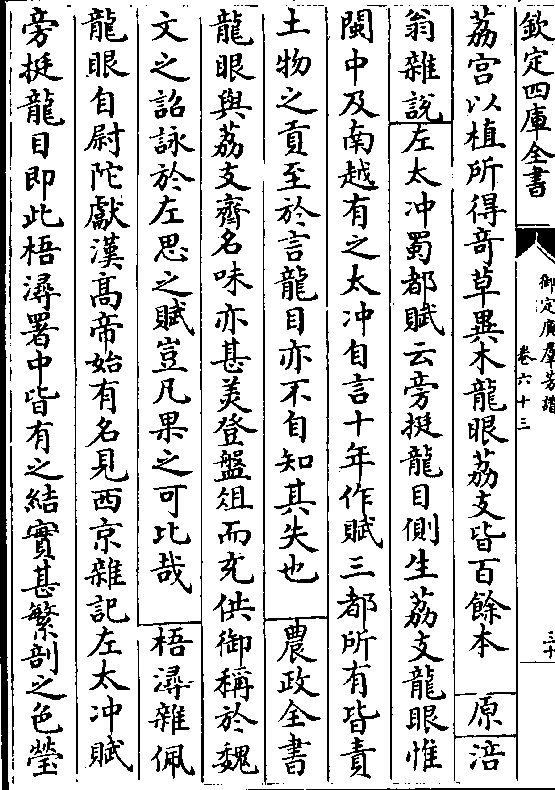 欽定四庫全書
御定廣羣芳譜
卷六十三
三十
荔宮以植所得竒草異木龍眼荔支皆百餘本 原 涪
翁雜說 左太冲蜀都賦云旁挺龍目側生荔支龍眼惟
閩中及南越有之太冲自言十年作賦三都所有皆責
土物之貢至於言龍目亦不自知其失也 農政全書
龍眼與荔支齊名味亦甚美登盤俎而充供御稱於魏
文之詔詠於左思之賦豈凡果之可比哉 梧潯雜佩
龍眼自尉陀獻漢髙帝始有名見西京雜記左太冲賦
旁挺龍目即此梧潯署中皆有之結實甚繁剖之色瑩